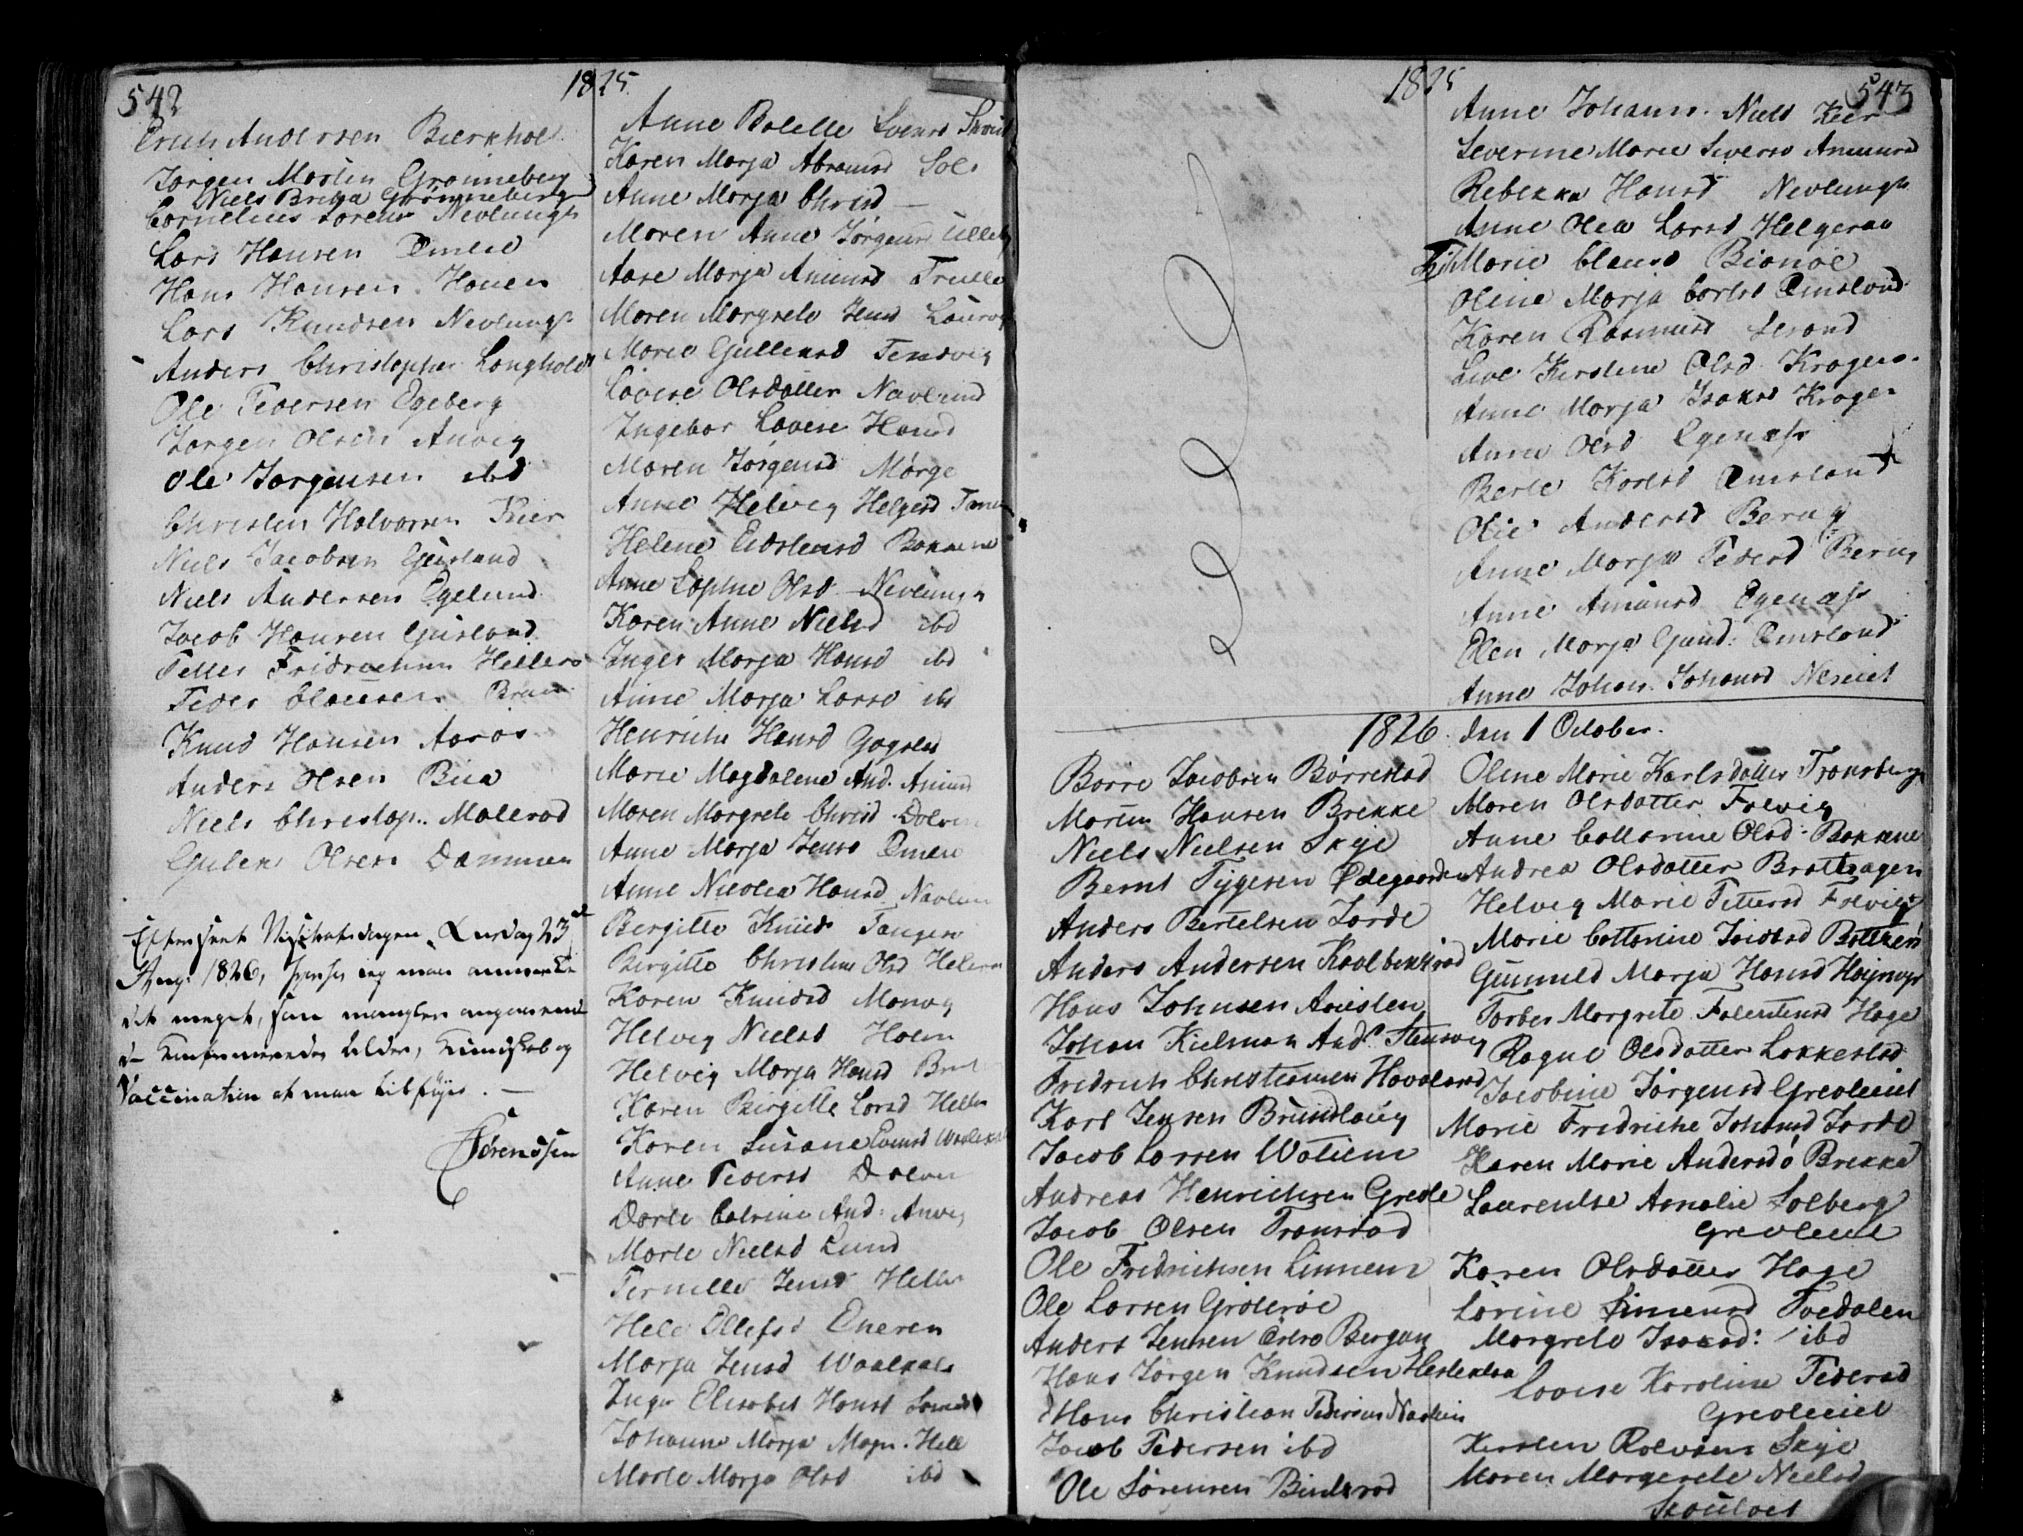 542
1825
Erich Andersen Bierkhol
Jørgen Martin Grønneberg
Niels Brina Grønneberg
Cornelius Sørens Nevlungh
Lars Hansen Omlid
Hans Hansen Hauen
Lars Knudsen Nevlungh
Anders Christopher Langholdt
Ole Pedersen Egeberg
Jørgen Olsen Anvig
Ole Jørgensen ibd
Christen Halvorsen Kier
Niels Jacobsen Gusland
Niels Andersen Egelund
Jacob Hansen Gusland
Petter Fridrichsen Hellers
Peder Clausen
Knud Hansen Aarøs
Anders Olsen Bua
Niels Christop. Malerød
Gulek Olsen Dammen
Efterseet Visitatsdagen, Onsdag 23de
Aug. 1826, hvorfor jeg maa anmærke
det meget, som mangler angaaende
de Confirmeredes Alder, Kundskab og
Vaccination at maa tilføyes. —
Sørenssen
Anne Bolette Svensd
Karen Marja Abramsd Sols
Anne Marja Chrisd —
Maren Anne Jørgensd Ulleb
Aase Marja Amunsd Trulle
Maren Margrete Jensd Laurv
Marie Gulleksd Tendvig
Lovise Olsdatter Navlund
Ingebor Lovise Hansd
Maren Jørgensd Mørge
Anne Helveg Helgesd
Helene Eidstensd Bakkene
Anne Sophie Olsd Nevlungh
Karen Anne Nielsd ibd
Inger Marja Hansd ibd
Anne Marja Larsd ibd
Henriche Hansd
Marie Magdalene And. Amund
Maren Margrete Chrisd Dolven
Anne Marja Jensd Omlid
Anne Nicolea Hansd Navlun
Bergitte Knuds Tangen
Birgitte Christine Olsd Heller
Karen Knudsd Manvig
Helvig Nielsd Holm
Helvig Marja Hansd
Karen Birgitte Larsd Heller
Karen Susane Evensd
Anne Pedersd Dolven
Dorte Catrine And. Anvig
Marte Nielsd Lund
Pernille Jensd Heller
Hele Ellefsd Eneren
Marja Jensd
Inger Elisabet Hansd
Johanne Marja Magn. Hell
Marte Marja Olsd ibd
1825
543
Anne Johann. Niels Kier
Severine Marie Siversd Amunrød
Rebekka Hansd Nevlungh
Anne Olea Larsd Helgeraa
Marie Clausd Bionøe
Oline Marja Carlsd Omsland
Karen Rasmusd Strand
Live Kirstine Olsd Krøger
Anne Marja Isaksd Krøger
Anne Olsd Egenæss
Berte Karlsd Omsland
Olie Andersd Berug
Anne Marja Pedersd Berug
Anne Amunsd Egenæss
Elen Marja Gund. Omsland
Anne Johan. Johansd
1826 den 1 October.
Børre Jacobsen Børrestad
Martin Hansen Brekke
Niels Nielsen Skije
Bernt Tygesen Ødegaarden
Anders Bertelsen Jorde
Anders Andersen Kaalbekkrød
Hans Johnsen Aristen
Johan Kielman And. Stensvig
Fredrich Christiansen Hovoland
Karl Jensen Brundlaug
Jacob Larsen
Andreas Henrichsen Grevle
Jacob Olsen Transtad
Ole Fredrichsen Linnene
Ole Larsen
Anders Jensen Østre Bergan
Hans Jørgen Knudsen
Hans Christian Pedersen
Jacob Pedersen ibd
Ole Sørensen
Oline Marie Karlsdatter Trønsberg
Maren Olsdatter Folvig
Anne Cattarine Olsd. Bakkene
Andrea Olsdatter Brathagen
Helvig Marie Pettersd Folvig
Marie Cattarine Jacobsd
Gunnild Marja Hansd
Torber Margrete Falentinsd Hage
Ragne Olsdatter Løkkestad
Jacobine Jørgensd Grevleiet
Marie Fredriche Johansd Jorde
Karen Marie Andersd Brekke
Laurentse Amalie Solberg
Grevleiet
Karen Olsdatter Hage
Lorine Simensd Tvedalen
Margrete Isaksd. ibd
Lovise Karoline Pedersd
Grevleiet
Kirsten Rolvsen Skije
Maren Margerete Nielsd